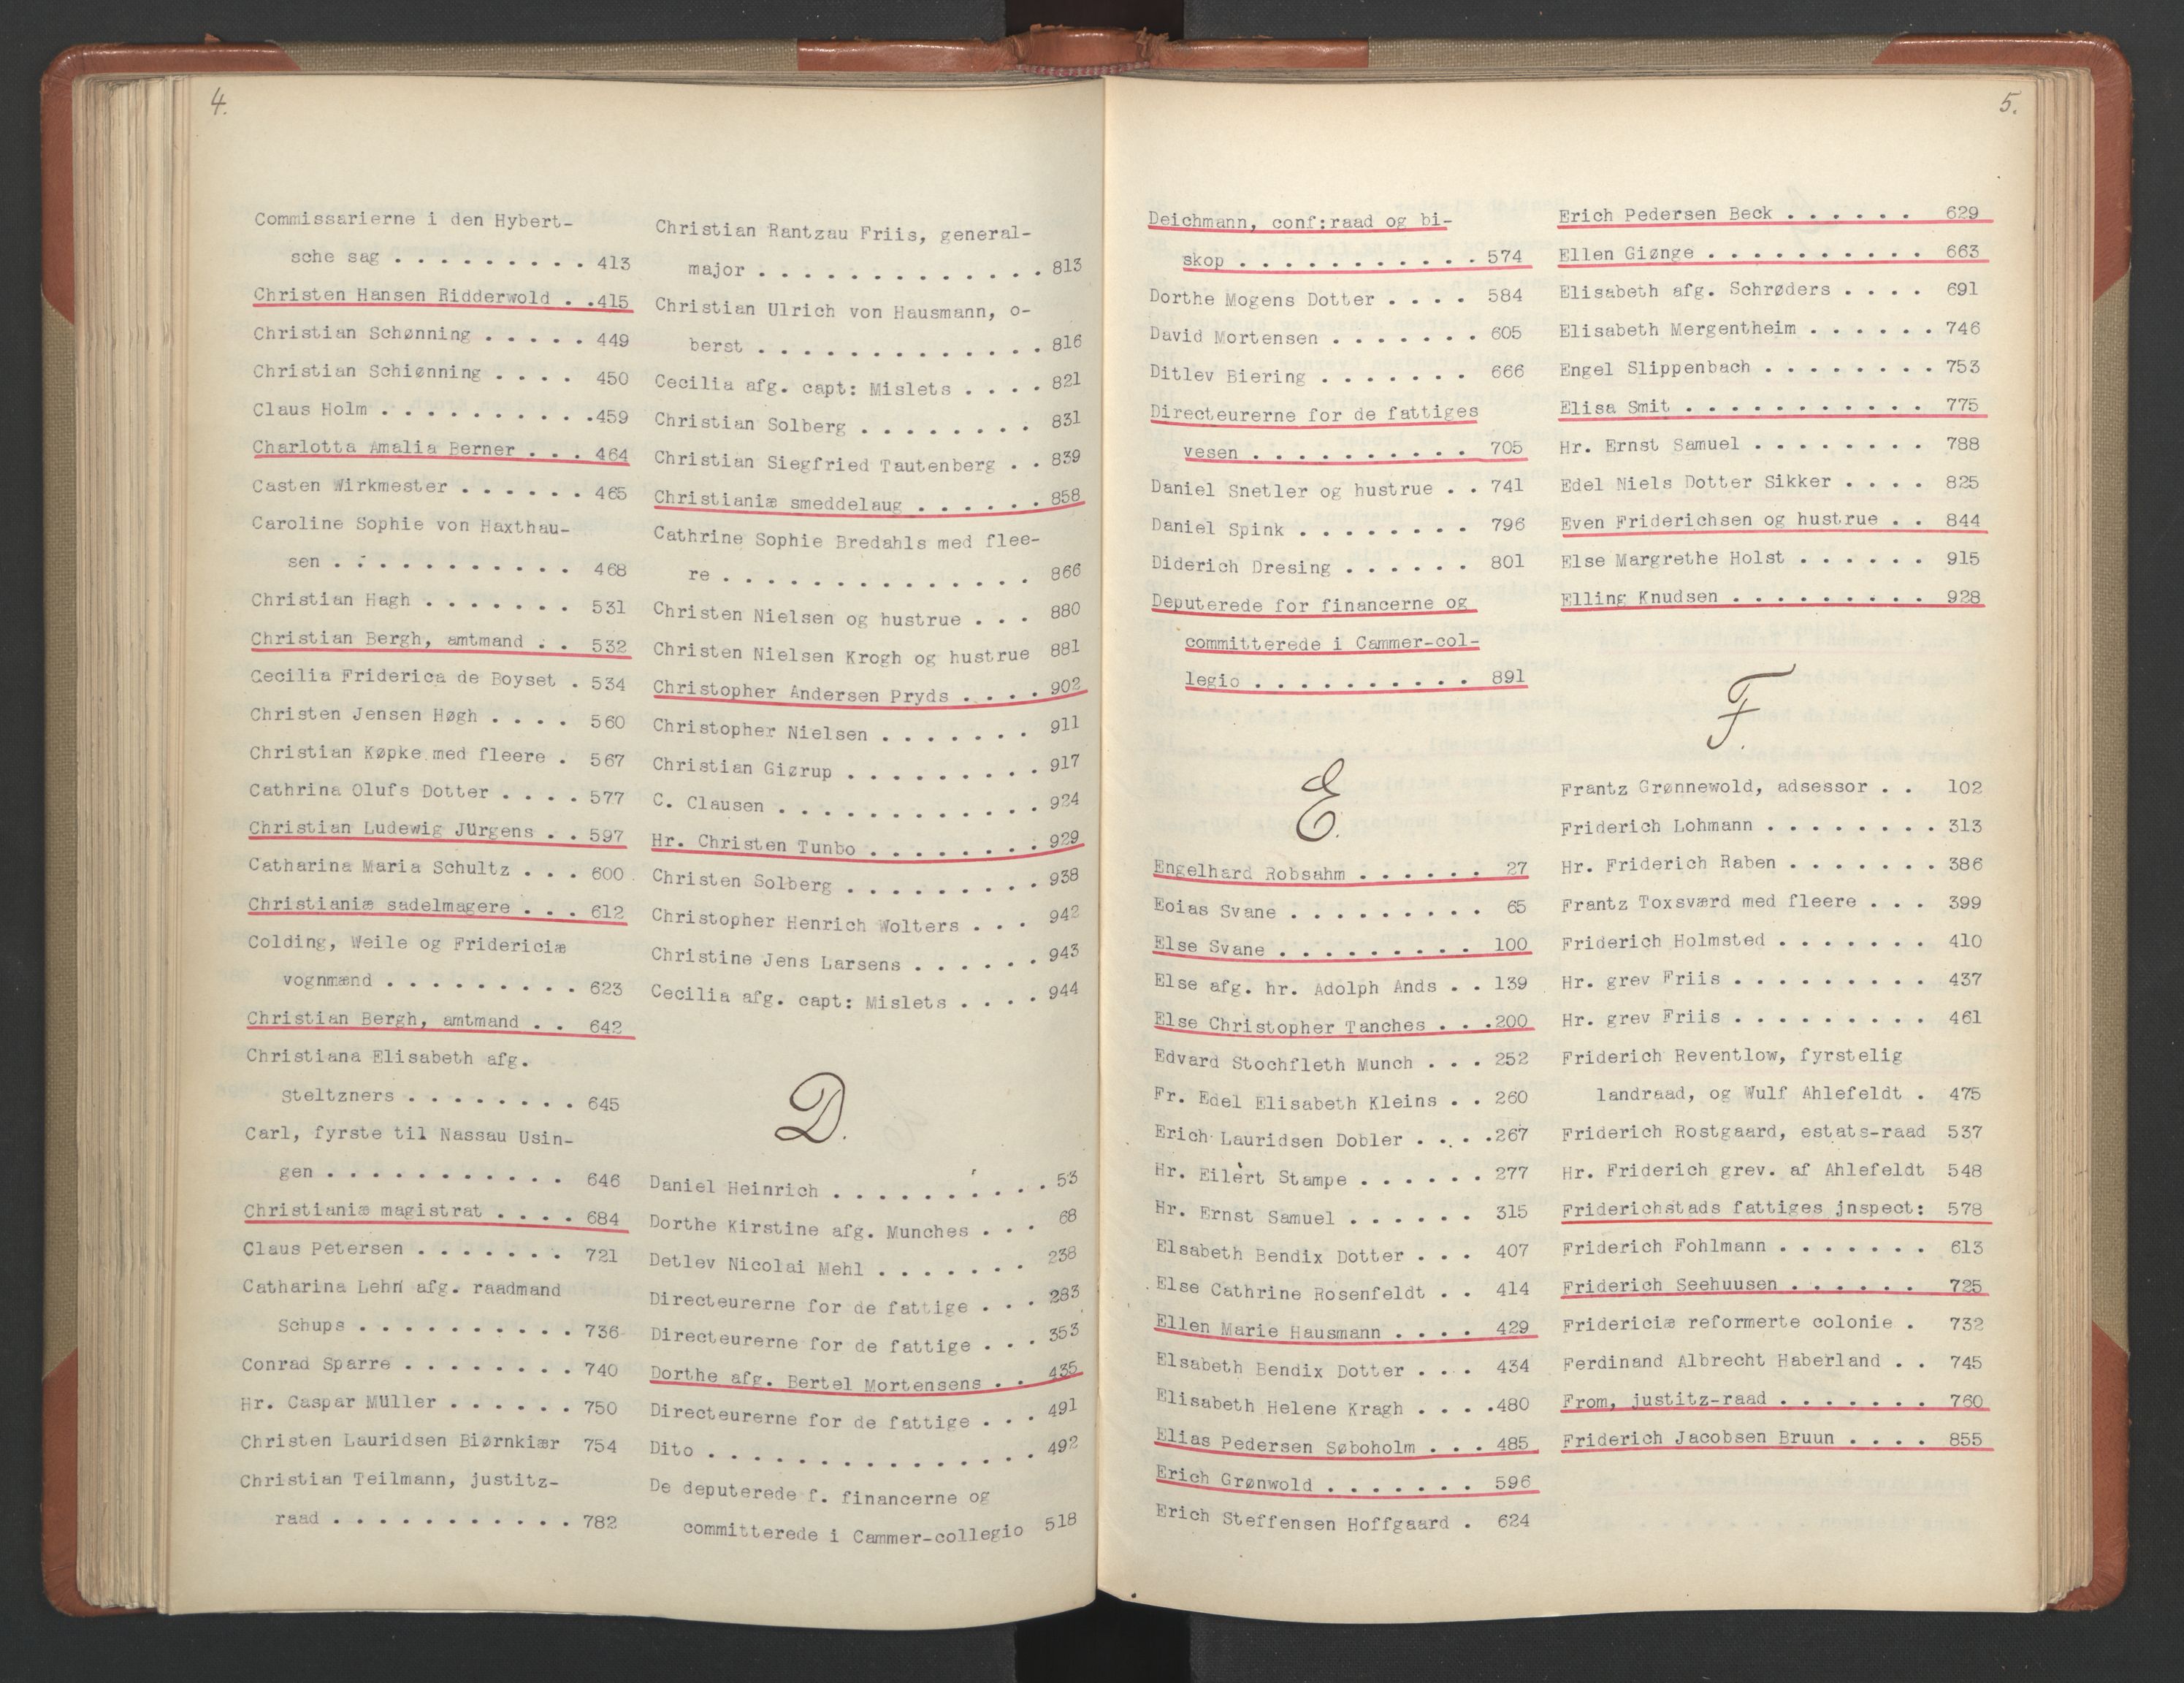 4.
Commissarierne i den Hybert-
sche sag . . . . . . . . . 413
Christen Hansen Ridderwold . .415
Christian Schønning . . . . . 449
Christian Schiønning . . . . 450
Claus Holm . . . . . . . . . .459
Charlotta Amalia Berner . . . 464
Casten Wirkmester . . . . . . 465
Caroline Sophie von Haxthau-
sen . . . . . . . . . . . 468
Christian Hagh . . . . . . . 531
Christian Bergh, amtmand . . 532
Cecilia Friderica de Boyset . 534
Christen Jensen Høgh . . . . 560
Christian Køpke med fleere . 567
Cathrina Olufs Dotter . . . . 577
Christian Ludewig Jürgens . . 597
Catharina Maria Schultz . . . 600
Christianiæ sadelmagere . . . 612
Colding, Weile og Fridericiæ
vognmænd . . . . . . . . . 623
Christian Bergh, amtmand . . 642
Christiana Elisabeth afg.
Steltzners . . . . . . . . 645
Carl, fyrste til Nassau Usin-
gen . . . . . . . . . . . 646
Christianiæ magistrat . . . . 684
Claus Petersen . . . . . . . 721
Catharina Lehn afg. raadmand
Schups . . . . . . . . . . 736
Conrad Sparre . . . . . . . . 740
Hr. Caspar Müller . . . . . . 750
Christen Lauridsen Biørnkiær 754
Christian Teilmann, justitz-
raad . . . . . . . . . . . 782
Christian Rantzau Friis, general-
major . . . . . . . . . . . . . 813
Christian Ulrich von Hausmann, o-
berst . . . . . . . . . . . . . 816
Cecilia afg. capt: Mislets . . . . 821
Christian Solberg . . . . . . . . 831
Christian Siegfried Tautenberg . . 839
Christianiæ smeddelaug . . . . . . 858
Cathrine Sophie Bredahls med flee-
re . . . . . . . . . . . . . . 866
Christen Nielsen og hustrue . . . 880
Christen Nielsen Krogh og hustrue 881
Christopher Andersen Pryds . . . . 902
Christopher Nielsen . . . . . . . 911
Christian Giørup . . . . . . . . . 917
C. Clausen . . . . . . . . . . . . 924
Hr. Christen Tunbo . . . . . . . . 929
Christen Solberg . . . . . . . . . 938
Christopher Henrich Wolters . . . 942
Christine Jens Larsens . . . . . . 943
Cecilia afg. capt: Mislets . . . . 944
D.
Daniel Heinrich . . . . . . . . . . 53
Dorthe Kirstine afg. Munches . . . 68
Detlev Nicolai Mehl . . . . . . . 238
Directeurerne for de fattige . . . 283
Directeurerne for de fattige . . . 353
Dorthe afg. Bertel Mortensens . . 435
Directeurerne for de fattige . . . 491
Dito . . . . . . . . . . . . . . . 492
De deputerede f. financerne og
committerede i Cammer-collegio 518
5.
Deichmann, conf:raad og bi-
skop . . . . . . . . . . . 574
Dorthe Mogens Dotter . . . . 584
David Mortensen . . . . . . . 605
Ditlev Biering . . . . . . . 666
Directeurerne for de fattiges
vesen . . . . . . . . . . 705
Daniel Snetler og hustrue . . 741
Daniel Spink . . . . . . . . 796
Diderich Dresing . . . . . . 801
Deputerede for financerne og
committerede i Cammer-col-
legio . . . . . . . . . . 891
E.
Engelhard Robsahm . . . . . . 27
Eoias Svane . . . . . . . . . 65
Else Svane . . . . . . . . . 100
Else afg. hr. Adolph Ands . . 139
Else Christopher Tanches . . .200
Edvard Stochfleth Munch . . . 252
Fr. Edel Elisabeth Kleins . . 260
Erich Lauridsen Dobler . . . .267
Hr. Eilert Stampe . . . . . . 277
Hr. Ernst Samuel . . . . . . 315
Elsabeth Bendix Dotter . . . 407
Else Cathrine Rosenfeldt . . 414
Ellen Marie Hausmann . . . . 429
Elsabeth Bendix Dotter . . . 434
Elisabeth Helene Kragh . . . .480
Elias Pedersen Søboholm . . . 485
Erich Grønwold . . . . . . . 596
Erich Steffensen Hoffgaard . 624
Erich Pedersen Beck . . . . . . 629
Ellen Giønge . . . . . . . . . . 663
Elisabeth afg. Schrøders . . . . 691
Elisabeth Mergentheim . . . . . . 746
Engel Slippenbach . . . . . . . . 753
Elisa Smit . . . . . . . . . . . 775
Hr. Ernst Samuel . . . . . . . . 788
Edel Niels Dotter Sikker . . . . 825
Even Friderichsen og hustrue . . 844
Else Margrethe Holst . . . . . . 915
Elling Knudsen . . . . . . . . . 928
F.
Frantz Grønnewold, adsessor . . 102
Friderich Lohmann . . . . . . . . 313
Hr. Friderich Raben . . . . . . . 386
Frantz Toxsværd med fleere . . . 399
Friderich Holmsted . . . . . . . 410
Hr. grev Friis . . . . . . . . . 437
Hr. grev Friis . . . . . . . . . 461
Friderich Reventlow, fyrstelig
landraad, og Wulf Ahlefeldt . 475
Friderich Rostgaard, estats-raad 537
Hr. Friderich grev. af Ahlefeldt 548
Friderichstads fattiges jnspect: 578
Friderich Fohlmann . . . . . . . 613
Friderich Seehuusen . . . . . . 725
Fridericiæ reformerte colonie . 732
Ferdinand Albrecht Haberland . . 745
From, justitz-raad . . . . . . . 760
Friderich Jacobsen Bruun . . . . 855